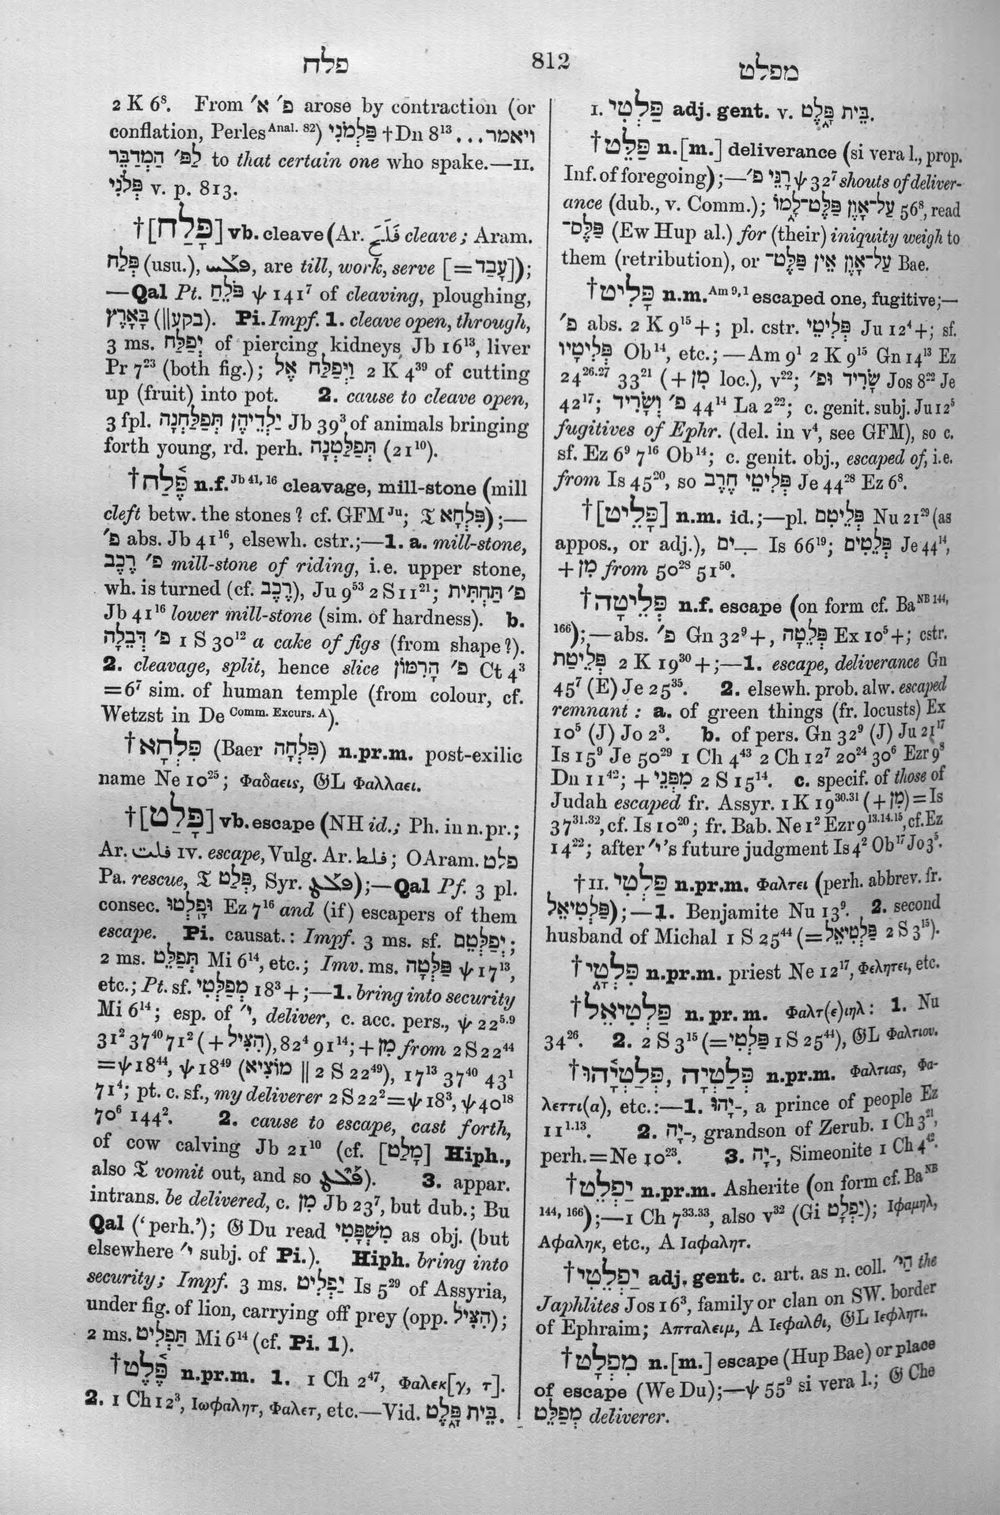 פלח
812
מפלט
2 K 6⁸. From פ׳ א׳ arose by contraction (or
conflation, Perles Anal. 82) פַּלְמֹנִי † Dn 8¹³ ... וַיֹּאמֶר
לַפּ׳ הַמְדַבֵּר to that certain one who spake.—II.
פְּלֹנִי v. p. 813.
†[פָּלַח] vb. cleave (Ar. فَلَحَ cleave; Aram.
פְּלַח (usu.), ܦܠܚ, are till, work, serve [=עָבַד]);
—Qal Pt. פֹּלֵחַ ψ 141⁷ of cleaving, ploughing,
בָּאָרֶץ (‖בקע). Pi. Impf. 1. cleave open, through,
3 ms. יְפַלַּח of piercing kidneys Jb 16¹³, liver
Pr 7²³ (both fig.); וַיְפַלַּח אֶל 2 K 4³⁹ of cutting
up (fruit) into pot. 2. cause to cleave open,
3 fpl. יַלְדֵיהֶן תְּפַלַּחְנָה Jb 39³, of animals bringing
forth young, rd. perh. תְּפַלֵּטְנָה (21¹⁰).
†פֶּ֫לַח n.f. Jb 41, 16 cleavage, mill-stone (mill
cleft betw. the stones? cf. GFM Ju; 𝔗 פִּלְחָא);—
פ׳ abs. Jb 41¹⁶, elsewh. cstr.;—1. a. mill-stone,
פ׳ רֶכֶב mill-stone of riding, i.e. upper stone,
wh. is turned (cf. רֶכֶב), Ju 9⁵³ 2 S 11²¹; פ׳ תַּחְתִּית
Jb 41¹⁶ lower mill-stone (sim. of hardness). b.
פ׳ דְּבֵלָה 1 S 30¹² a cake of figs (from shape?).
2. cleavage, split, hence slice פ׳ הָרִמּוֹן Ct 4³
=6⁷ sim. of human temple (from colour, cf.
Wetzst in De Comm. Excurs. A).
†פִּלְחָא (Baer פִּלְחָה) n.pr.m. post-exilic
name Ne 10²⁵; Φαδαεις, 𝔊L Φαλλαει.
†[פָּלַט] vb. escape (NH id.; Ph. in n.pr.;
Ar. فلت IV. escape, Vulg. Ar. فلط; OAram. פלט
Pa. rescue, 𝔗 פְּלַט, Syr. ܦܠܛ);—Qal Pf. 3 pl.
consec. וּפָלְטוּ Ez 7¹⁶ and (if) escapers of them
escape. Pi. causat.: Impf. 3 ms. sf. יְפַלְּטֵם;
2 ms. תְּפַלֵּט Mi 6¹⁴, etc.; Imv. ms. פַּלְּטָה ψ 17¹³,
etc.; Pt. sf. מְפַלְטִי 18³+;—1. bring into security
Mi 6¹⁴; esp. of י׳, deliver, c. acc. pers., ψ 22⁵·⁹
31² 37⁴⁰ 71² (+הִצִּיל), 82⁴ 91¹⁴; +מִן from 2 S 22⁴⁴
=ψ 18⁴⁴, ψ 18⁴⁹ (מוֹצִיא ‖ 2 S 22⁴⁹), 17¹³ 37⁴⁰ 43¹
71⁴; pt. c. sf., my deliverer 2 S 22²=ψ 18³, ψ 40¹⁸
70⁶ 144². 2. cause to escape, cast forth,
of cow calving Jb 21¹⁰ (cf. [מָלַט] Hiph.,
also 𝔗 vomit out, and so ܦܠܛ). 3. appar.
intrans. be delivered, c. מִן Jb 23⁷, but dub.; Bu
Qal (‘perh.’); 𝔊 Du read מִשְׁפָּטִי as obj. (but
elsewhere י׳ subj. of Pi.). Hiph. bring into
security; Impf. 3 ms. יַפְלִיט Is 5²⁹ of Assyria,
under fig. of lion, carrying off prey (opp. הִצִּיל);
2 ms. תַּפְלִיט Mi 6¹⁴ (cf. Pi. 1).
†פֶּ֫לֶט n.pr.m. 1. 1 Ch 2⁴⁷, Φαλεκ[γ, τ].
2. 1 Ch 12³, Ιωφαλητ, Φαλετ, etc.—Vid. בֵּית פֶּלֶט.
I. פַּלְטִי adj. gent. v. בֵּית פֶּלֶט.
†פַּלֵּט n.[m.] deliverance (si vera l., prop.
Inf. of foregoing);—רָנֵּי פ׳ ψ 32⁷ shouts of deliver-
ance (dub., v. Comm.); עַל־אָוֶן פַּלֶּט־לָמוֹ 56⁸, read
פַּלֶּס־ (Ew Hup al.) for (their) iniquity weigh to
them (retribution), or עַל־אָוֶן אֵין פַּלֵּט־ Bae.
†פָּלִיט n.m. Am 9, 1 escaped one, fugitive;—
פ׳ abs. 2 K 9¹⁵+; pl. cstr. פְּלִיטֵי Ju 12⁴+; sf.
פְּלִיטָיו Ob¹⁴, etc.;—Am 9¹ 2 K 9¹⁵ Gn 14¹³ Ez
24²⁶·²⁷ 33²¹ (+מִן loc.), v²²; שָׂרִיד וּפ׳ Jos 8²² Je
42¹⁷; פ׳ וְשָׂרִיד 44¹⁴ La 2²²; c. genit. subj. Ju 12⁵
fugitives of Ephr. (del. in v⁴, see GFM), so c.
sf. Ez 6⁹ 7¹⁶ Ob¹⁴; c. genit. obj., escaped of, i.e.
from Is 45²⁰, so פְּלִיטֵי חֶרֶב Je 44²⁸ Ez 6⁸.
†[פָּלֵיט] n.m. id.;—pl. פְּלֵיטִם Nu 21²⁹ (as
appos., or adj.), ־ים Is 66¹⁹; פְּלֵטִים Je 44¹⁴,
+מִן from 50²⁸ 51⁵⁰.
†פְּלֵיטָה n.f. escape (on form cf. Ba NB 144,
166);—abs. פ׳ Gn 32⁹+, פְּלֵטָה Ex 10⁵+; cstr.
פְּלֵיטַת 2 K 19³⁰+;—1. escape, deliverance Gn
45⁷ (E) Je 25³⁵. 2. elsewh. prob. alw. escaped
remnant: a. of green things (fr. locusts) Ex
10⁵ (J) Jo 2³. b. of pers. Gn 32⁹ (J) Ju 21¹⁷
Is 15⁹ Je 50²⁹ 1 Ch 4⁴³ 2 Ch 12⁷ 20²⁴ 30⁶ Ezr 9⁸
Dn 11⁴²; +מִפְּנֵי 2 S 15¹⁴. c. specif. of those of
Judah escaped fr. Assyr. 1 K 19³⁰·³¹ (+מִן)=Is
37³¹·³², cf. Is 10²⁰; fr. Bab. Ne 1² Ezr 9¹³·¹⁴·¹⁵, cf. Ez
14²²; after י׳'s future judgment Is 4² Ob¹⁷ Jo 3⁵.
†II. פַּלְטִי n.pr.m. Φαλτει (perh. abbrev. fr.
פַּלְטִיאֵל);—1. Benjamite Nu 13⁹. 2. second
husband of Michal 1 S 25⁴⁴ (=פַּלְטִיאֵל 2 S 3¹⁵).
†פִּלְטָי n.pr.m. priest Ne 12¹⁷, Φεληтει, etc.
†פַּלְטִיאֵל n. pr. m. Φαλτ(ε)ιηλ: 1. Nu
34²⁶. 2. 2 S 3¹⁵ (=פַּלְטִי 1 S 25⁴⁴), 𝔊L Φαλτιου.
†פְּלַטְיָה, פְּלַטְיָהוּ n.pr.m. Φαλτιας, Φα-
λεττι(α), etc.:—1. ־יָהוּ, a prince of people Ez
11¹·¹³. 2. ־יָה, grandson of Zerub. 1 Ch 3²¹,
perh.=Ne 10²³. 3. ־יָה, Simeonite 1 Ch 4⁴².
†יַפְלֵט n.pr.m. Asherite (on form cf. Ba NB
144, 166);—1 Ch 7³³·³³, also v³² (Gi יַפְלָט); Ιφαμηλ,
Αφαληκ, etc., A Ιαφαλητ.
†יַפְלֵטִי adj. gent. c. art. as n. coll. הַי׳ the
Japhlites Jos 16³, family or clan on SW. border
of Ephraim; Απταλειμ, A Ιεφαλθι, 𝔊L Ιεφλητι.
†מִפְלָט n.[m.] escape (Hup Bae) or place
of escape (We Du);—ψ 55⁹ si vera l.; 𝔊 Che
מְפַלֵּט deliverer.